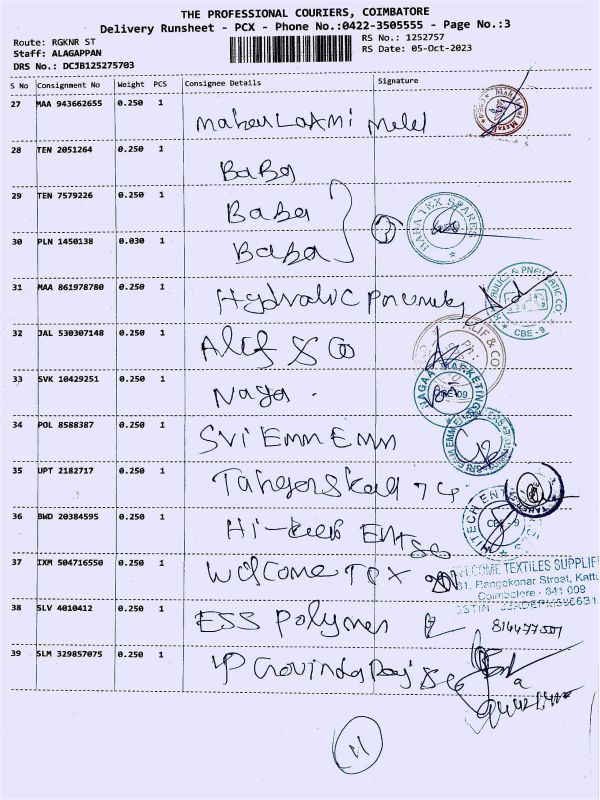 THE PROFESSIONAL COURIERS, COIMBATORE
Delivery Runsheet - PCX - Phone No.:0422-3505555 - Page No.:3
Route: RGKNR ST
RS No.: 1252757
Staff: ALAGAPPAN
RS Date: 05-Oct-2023
DRS No.: DCJB125275703
S No Consignment No Weight PCS Consignee Details Signature
27 MAA 943662655 0.250 1 Mahaulaxmi
28 TEN 2051264 0.250 1 BaBa
29 TEN 7579226 0.250 1 BaBa 3 BABA TEX SPARES
30 PLN 1450138 0.030 1 BaBa
31 MAA 861978780 0.250 1 Hydralic & PNEUMATIC CO. CBE - 9
32 JAL 530307148 0.250 1 Alif & Co ALIF & CO
33 SVK 10429251 0.250 1 Naga NAGAA MARKETING
34 POL 8588387 0.250 1 Sri Emm Emm SRI EMM EMM
35 UPT 2182717 0.250 1
36 BWD 20384595 0.250 1 Hi-tech Ent HITECH ENT CBE - 9
37 IXM 504716550 0.250 1 Welcome Tex WELCOME TEXTILES SUPPLIE
Rangakonar Street, Kattu
Coimbatore - 641 009
38 SLV 4010412 0.250 1 ESS Polymer
39 SLM 329857075 0.250 1 P Govinda Raj & Co
11